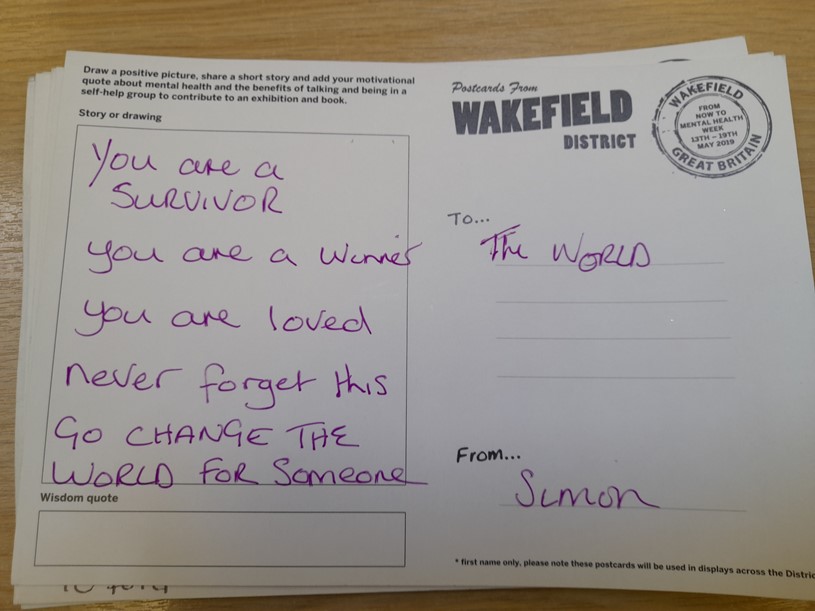 Draw a positive picture, share a short story and add your motivational
quote about mental health and the benefits of talking and being in a
self-help group to contribute to an exhibition and book.
Story or drawing
You are a
SURVIVOR
you are a winner
you are loved
never forget this
GO CHANGE THE
WORLD FOR Someone
Wisdom quote
Postcards From
WAKEFIELD
DISTRICT
WAKEFIELD
FROM
NOW TO
MENTAL HEALTH
WEEK
13TH – 19TH
MAY 2019
GREAT BRITAIN
To...
The WORLD
From...
Simon
* first name only, please note these postcards will be used in displays across the Distric